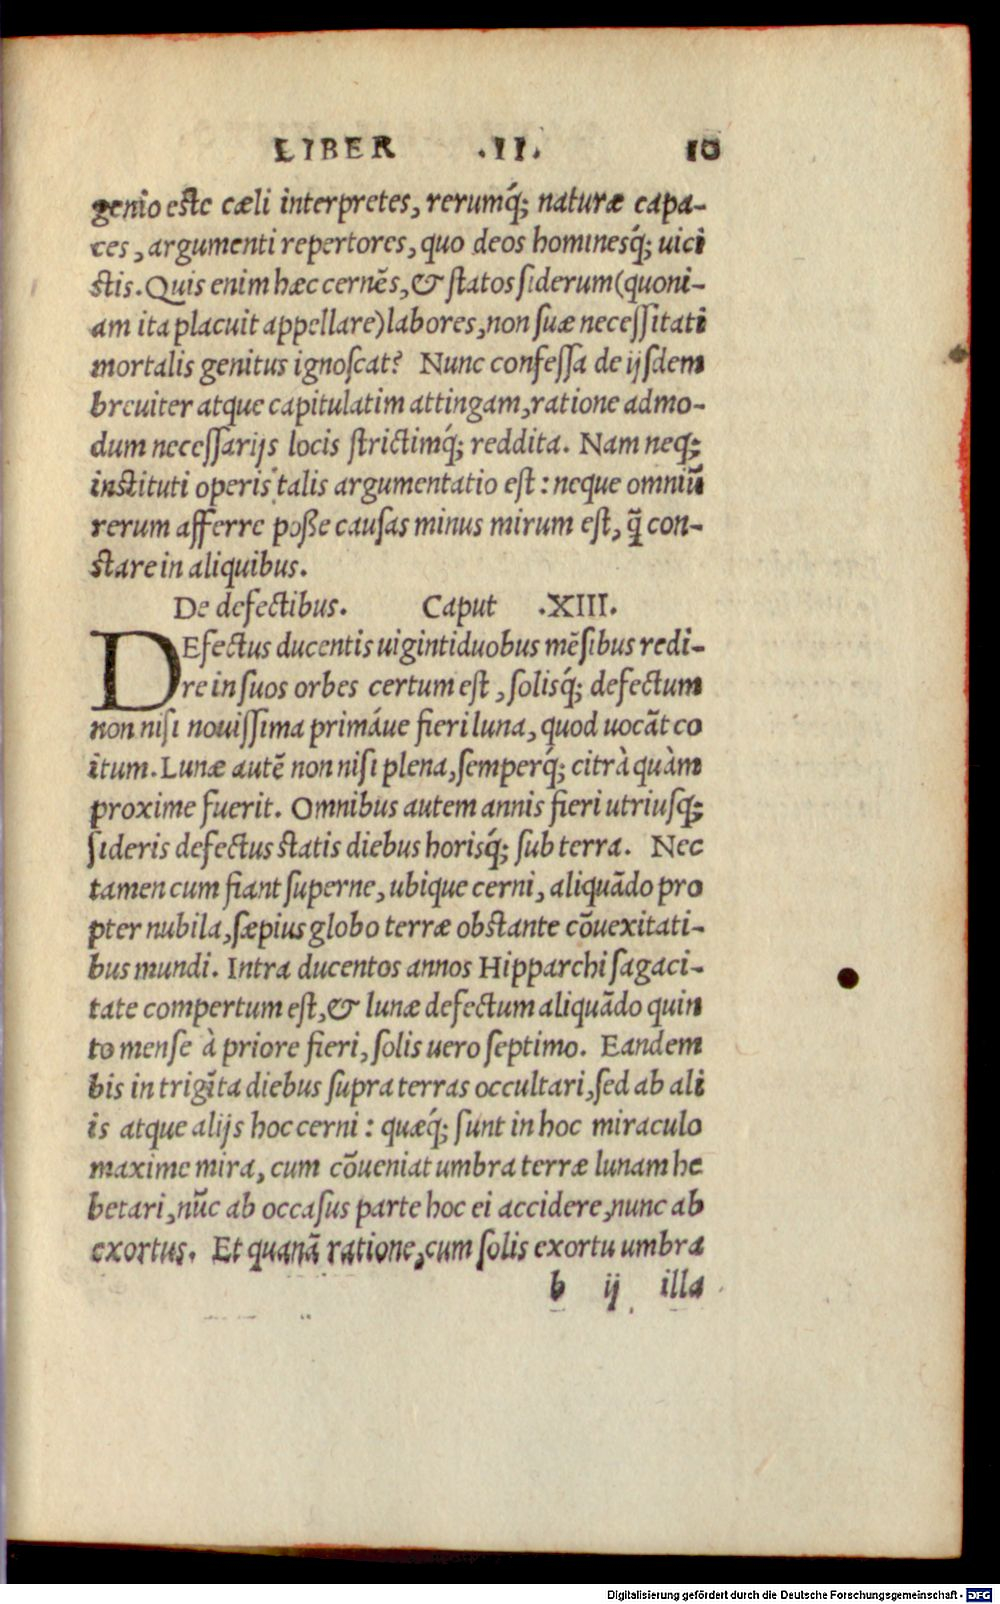 LIBER .II. 10
genio este cæli interpretes, rerumq́; naturæ capa-
ces, argumenti repertores, quo deos hominesq́; uici
stis. Quis enim hæc cernẽs, & statos siderum (quoni-
am ita placuit appellare) labores, non suæ necessitati
mortalis genitus ignoscat? Nunc confessa de ijsdem
breuiter atque capitulatim attingam, ratione admo-
dum necessarijs locis strictimq́; reddita. Nam neq;
instituti operis talis argumentatio est: neque omniũ
rerum afferre poße causas minus mirum est, q̃ con-
stare in aliquibus.
De defectibus. Caput .XIII.
DEfectus ducentis uigintiduobus mẽsibus redi-
re in suos orbes certum est, solisq́; defectum
non nisi nouissima primáue fieri luna, quod uocãt co
itum. Lunæ autẽ non nisi plena, semperq́; citrà quàm
proxime fuerit. Omnibus autem annis fieri utriusq;
sideris defectus statis diebus horisq́; sub terra. Nec
tamen cum fiant superne, ubique cerni, aliquãdo pro
pter nubila, sæpius globo terræ obstante cõuexitati-
bus mundi. Intra ducentos annos Hipparchi sagaci-
tate compertum est, & lunæ defectum aliquãdo quin
to mense à priore fieri, solis uero septimo. Eandem
bis in trigĩta diebus supra terras occultari, sed ab ali
is atque alijs hoc cerni: quæq́; sunt in hoc miraculo
maxime mira, cum cõueniat umbra terræ lunam he
betari, nũc ab occasus parte hoc ei accidere, nunc ab
exortus. Et quanã ratione, cum solis exortu umbra
b ij illa
Digitalisierung gefördert durch die Deutsche Forschungsgemeinschaft - DFG